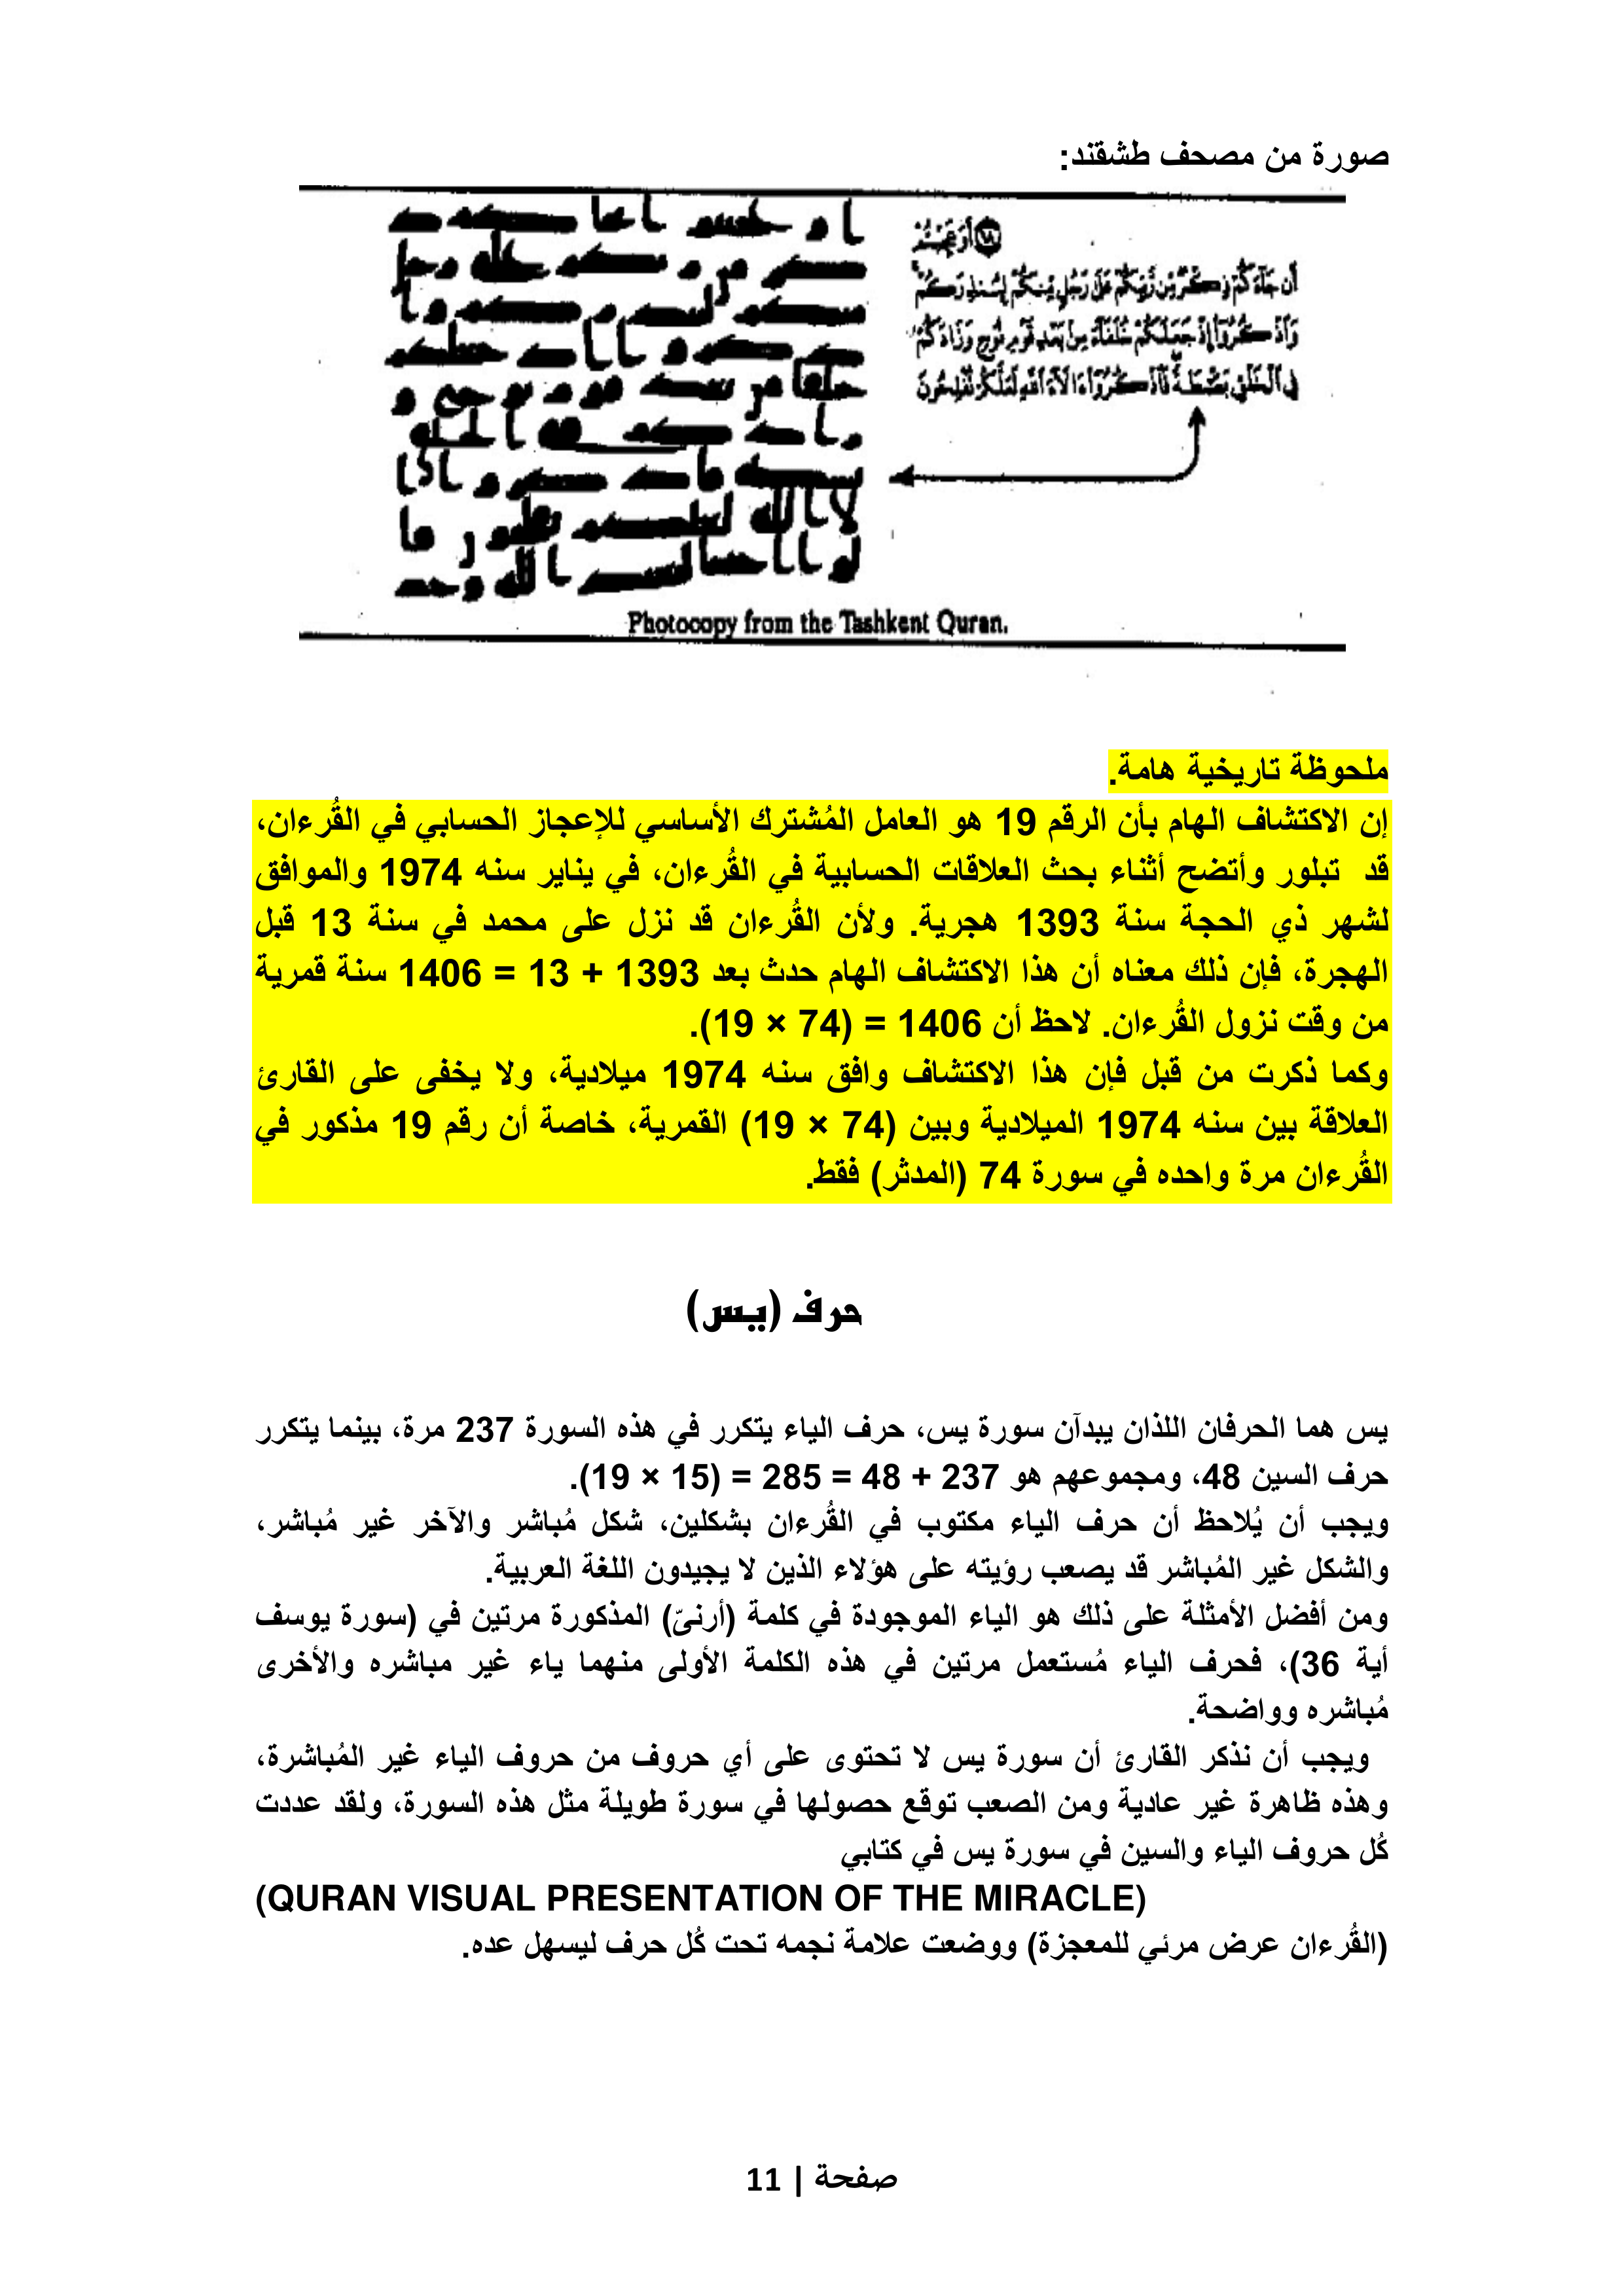 صورة من مصحف طشقند:
أن جاءكم ذكر من ربكم على رجل منكم لينذركم
واذكروا إذ جعلكم خلفاء من بعد قوم نوح وزادكم
في الخلق بصطة فاذكروا ءالاء الله لعلكم تفلحون
Photocopy from the Tashkent Quran.
ملحوظة تاريخية هامة.
إن الاكتشاف الهام بأن الرقم 19 هو العامل المُشترك الأساسي للإعجاز الحسابي في القُرءان،
قد تبلور وأتضح أثناء بحث العلاقات الحسابية في القُرءان، في يناير سنه 1974 والموافق
لشهر ذي الحجة سنة 1393 هجرية. ولأن القُرءان قد نزل على محمد في سنة 13 قبل
الهجرة، فإن ذلك معناه أن هذا الاكتشاف الهام حدث بعد 1393 + 13 = 1406 سنة قمرية
من وقت نزول القُرءان. لاحظ أن 1406 = (74 × 19).
وكما ذكرت من قبل فإن هذا الاكتشاف وافق سنه 1974 ميلادية، ولا يخفى على القارئ
العلاقة بين سنه 1974 الميلادية وبين (74 × 19) القمرية، خاصة أن رقم 19 مذكور في
القُرءان مرة واحده في سورة 74 (المدثر) فقط.
حرف (يس)
يس هما الحرفان اللذان يبدآن سورة يس، حرف الياء يتكرر في هذه السورة 237 مرة، بينما يتكرر
حرف السين 48، ومجموعهم هو 237 + 48 = 285 = (15 × 19).
ويجب أن يُلاحظ أن حرف الياء مكتوب في القُرءان بشكلين، شكل مُباشر والآخر غير مُباشر،
والشكل غير المُباشر قد يصعب رؤيته على هؤلاء الذين لا يجيدون اللغة العربية.
ومن أفضل الأمثلة على ذلك هو الياء الموجودة في كلمة (أرنىّ) المذكورة مرتين في (سورة يوسف
أية 36)، فحرف الياء مُستعمل مرتين في هذه الكلمة الأولى منهما ياء غير مباشره والأخرى
مُباشره وواضحة.
ويجب أن نذكر القارئ أن سورة يس لا تحتوى على أي حروف من حروف الياء غير المُباشرة،
وهذه ظاهرة غير عادية ومن الصعب توقع حصولها في سورة طويلة مثل هذه السورة، ولقد عددت
كُل حروف الياء والسين في سورة يس في كتابي
(QURAN VISUAL PRESENTATION OF THE MIRACLE)
(القُرءان عرض مرئي للمعجزة) ووضعت علامة نجمه تحت كُل حرف ليسهل عده.
صفحة | 11